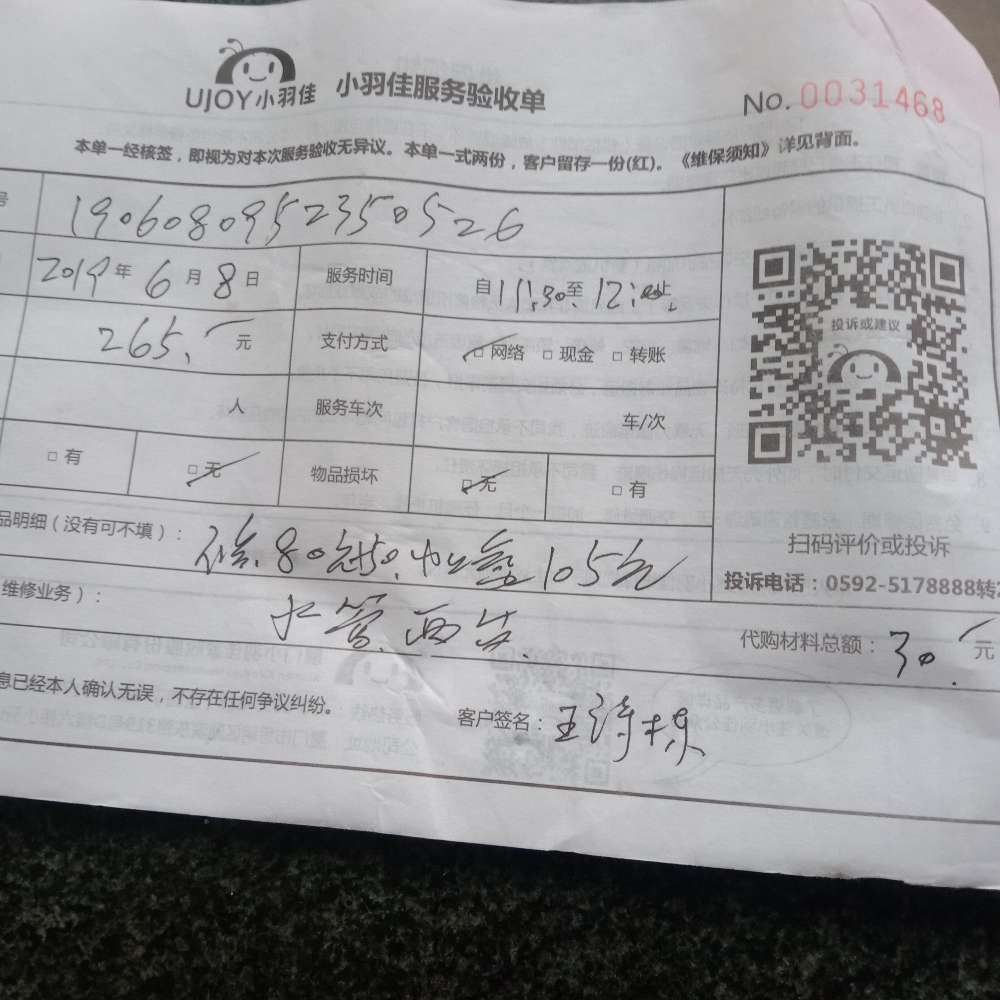 UJOY小羽佳 小羽佳服务验收单 No.0031468
本单一经核签，即视为对本次服务验收无异议。本单一式两份，客户留存一份(红)。《维保须知》详见背面。
号 190608095235０526
2019年6月8日 服务时间 自11:30至12:
265.元 支付方式 □网络 □现金 □转账
人 服务车次 车/次
□有 □无 物品损坏 □无 □有
投诉或建议
扫码评价或投诉
投诉电话：0592-5178888转2
品明细（没有可不填）： 80 105元
维修业务）： 水管
代购材料总额：30.元
息已经本人确认无误，不存在任何争议纠纷。
客户签名：王诗栋